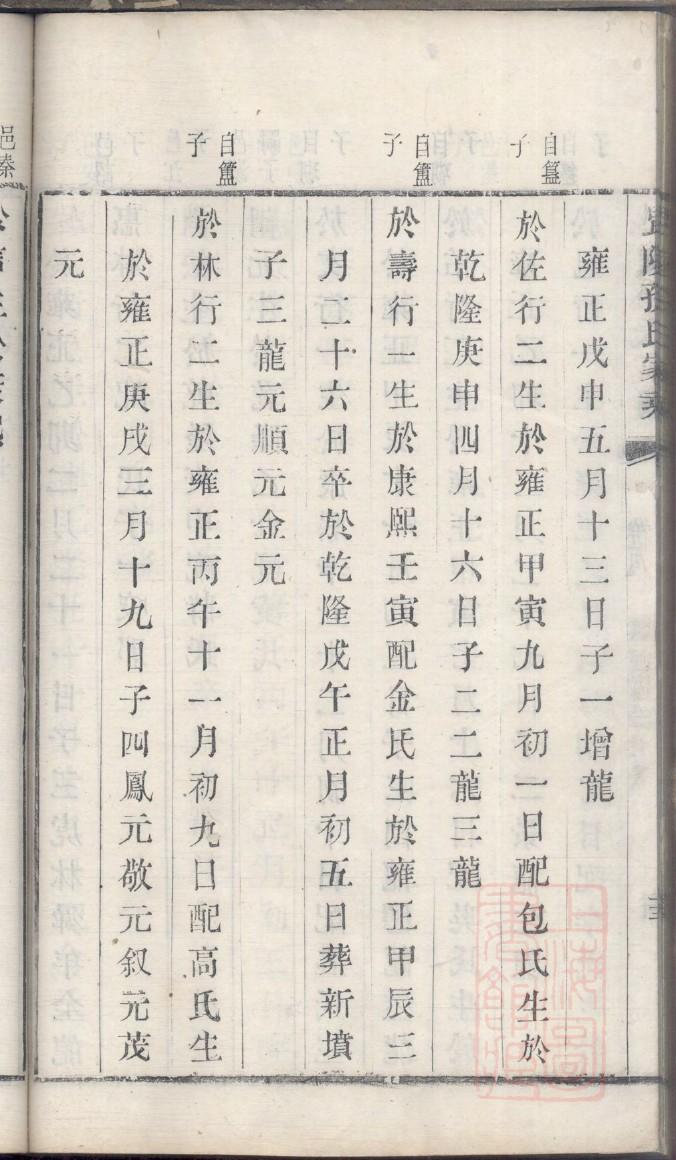 雍正戊申五月十三日子一增龍
自簠子
於佐行二生於雍正甲寅九月初一日配包氏生於
乾隆庚申四月十六日子二二龍三龍
自簠子
於壽行一生於康熙壬寅配金氏生於雍正甲辰三
月二十六日卒於乾隆戊午正月初五日葬新墳
子三龍元順元金元
自簠子
於林行二生於雍正丙午十一月初九日配高氏生
於雍正庚戌三月十九日子四鳳元敬元叙元茂
元